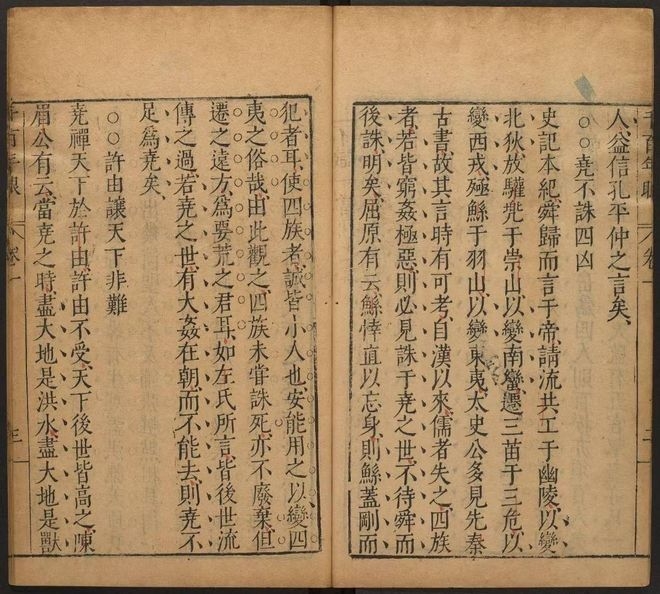 人益信孔平仲之言矣
○○堯不誅四凶
史記本紀舜歸而言于帝請流共工于幽陵以變
北狄放驩兠于崇山以變南蠻遷三苗于三危以
變西戎殛鯀于羽山以變東夷太史公多見先秦
古書故其言時有可考自漢以來儒者失之四族
者若皆窮姦極惡則必見誅于堯之世不待舜而
後誅明矣屈原有云鯀悻直以忘身則鯀蓋剛而
犯者耳使四族者誠皆小人也安能用之以變四
夷之俗哉由此觀之四族未嘗誅死亦不廢棄但
遷之遠方為要荒之君耳如左氏所言皆後世流
傳之過若堯之世有大姦在朝而不能去則堯不
足為堯矣
○○許由讓天下非難
堯禪天下於許由許由不受天下後世皆高之陳
眉公有云當堯之時盡大地是洪水盡大地是獸
三